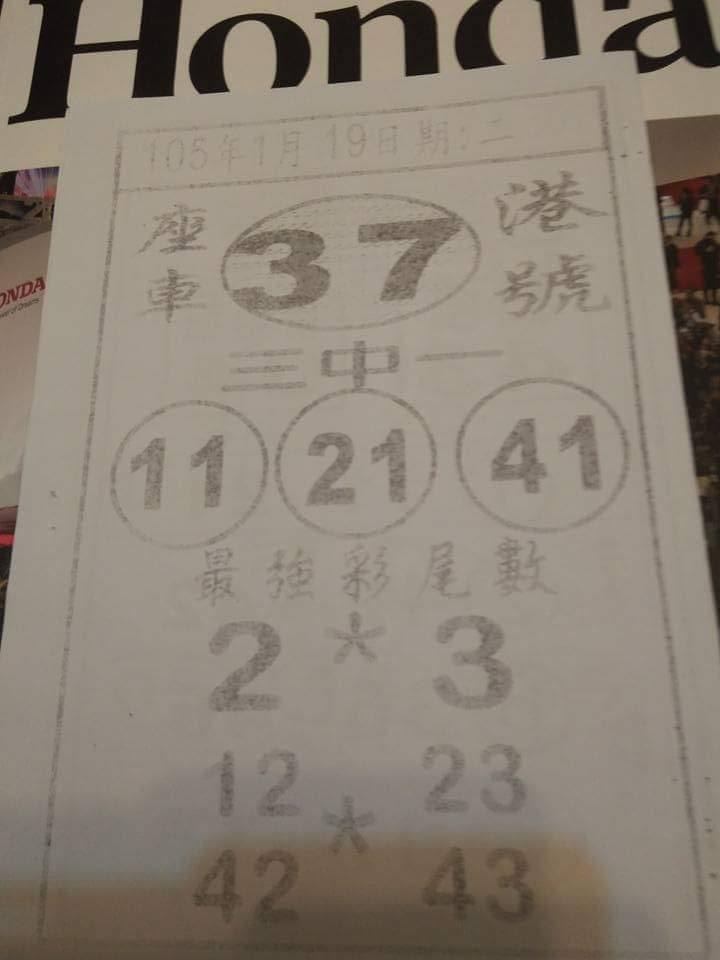 Honda
105年1月19日期:二
座車 37 港號
三中一
11 21 41
最強彩尾數
2 * 3
12 23
*
42 43
ONDA
ower of Dreams